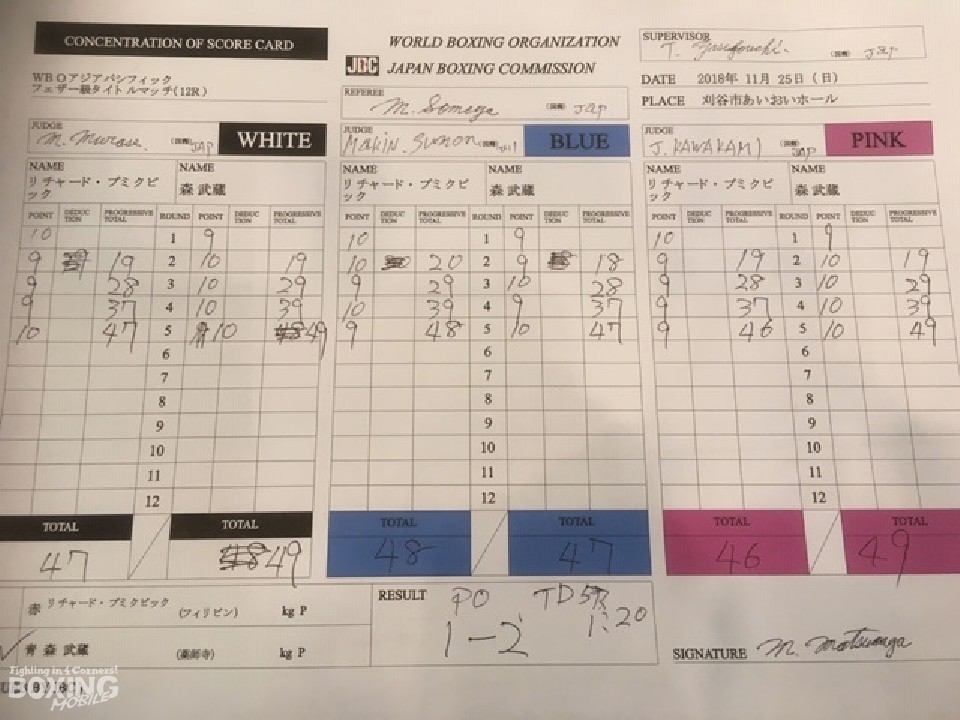 CONCENTRATION OF SCORE CARD
WORLD BOXING ORGANIZATION
JBC JAPAN BOXING COMMISSION
SUPERVISOR
JAP
WBOアジアパシフィック
フェザー級タイトルマッチ(12R)
REFEREE
M. Someya (国籍) Jap
DATE 2018年 11月 25日 (日)
PLACE 刈谷市あいおいホール
JUDGE
M. Murase (国籍) JAP WHITE
JUDGE
(国籍) BLUE
JUDGE
J. KAWAKAMI (国籍) JAP PINK
NAME NAME NAME NAME NAME NAME
リチャード・プミクピック 森 武蔵 リチャード・プミクピック 森 武蔵 リチャード・プミクピック 森 武蔵
POINT DEDUCTION PROGRESSIVE TOTAL ROUND POINT DEDUCTION PROGRESSIVE TOTAL POINT DEDUCTION PROGRESSIVE TOTAL ROUND POINT DEDUCTION PROGRESSIVE TOTAL POINT DEDUCTION PROGRESSIVE TOTAL ROUND POINT DEDUCTION PROGRESSIVE TOTAL
10 1 9 10 1 9 10 1 9
9 19 2 10 19 10 20 2 9 18 9 19 2 10 19
9 28 3 10 29 9 29 3 10 28 9 28 3 10 29
9 37 4 10 39 10 39 4 9 37 9 37 4 10 39
10 47 5 10 49 9 48 5 10 47 9 46 5 10 49
6 6 6
7 7 7
8 8 8
9 9 9
10 10 10
11 11 11
12 12 12
TOTAL TOTAL TOTAL TOTAL TOTAL TOTAL
47 49 48 47 46 49
赤 リチャード・プミクピック (フィリピン) kg P
青 森 武蔵 (薬師寺) kg P
RESULT PO TD 5R
1-2 1:20
SIGNATURE M. Matsunaga
Fighting in 4 Corners!
BOXING
MOBILE